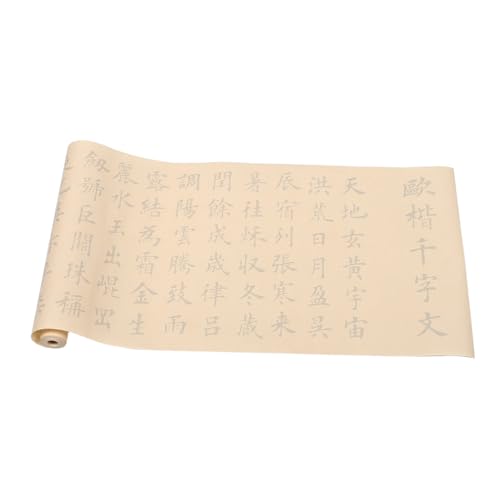 歐楷千字文
天地玄黃宇宙
洪荒日月盈昃
辰宿列張寒来
暑往秋収冬藏
閏餘成歲律呂
調陽雲騰致雨
露結為霜金生
麗水玉出崐岡
劔號巨闕珠稱